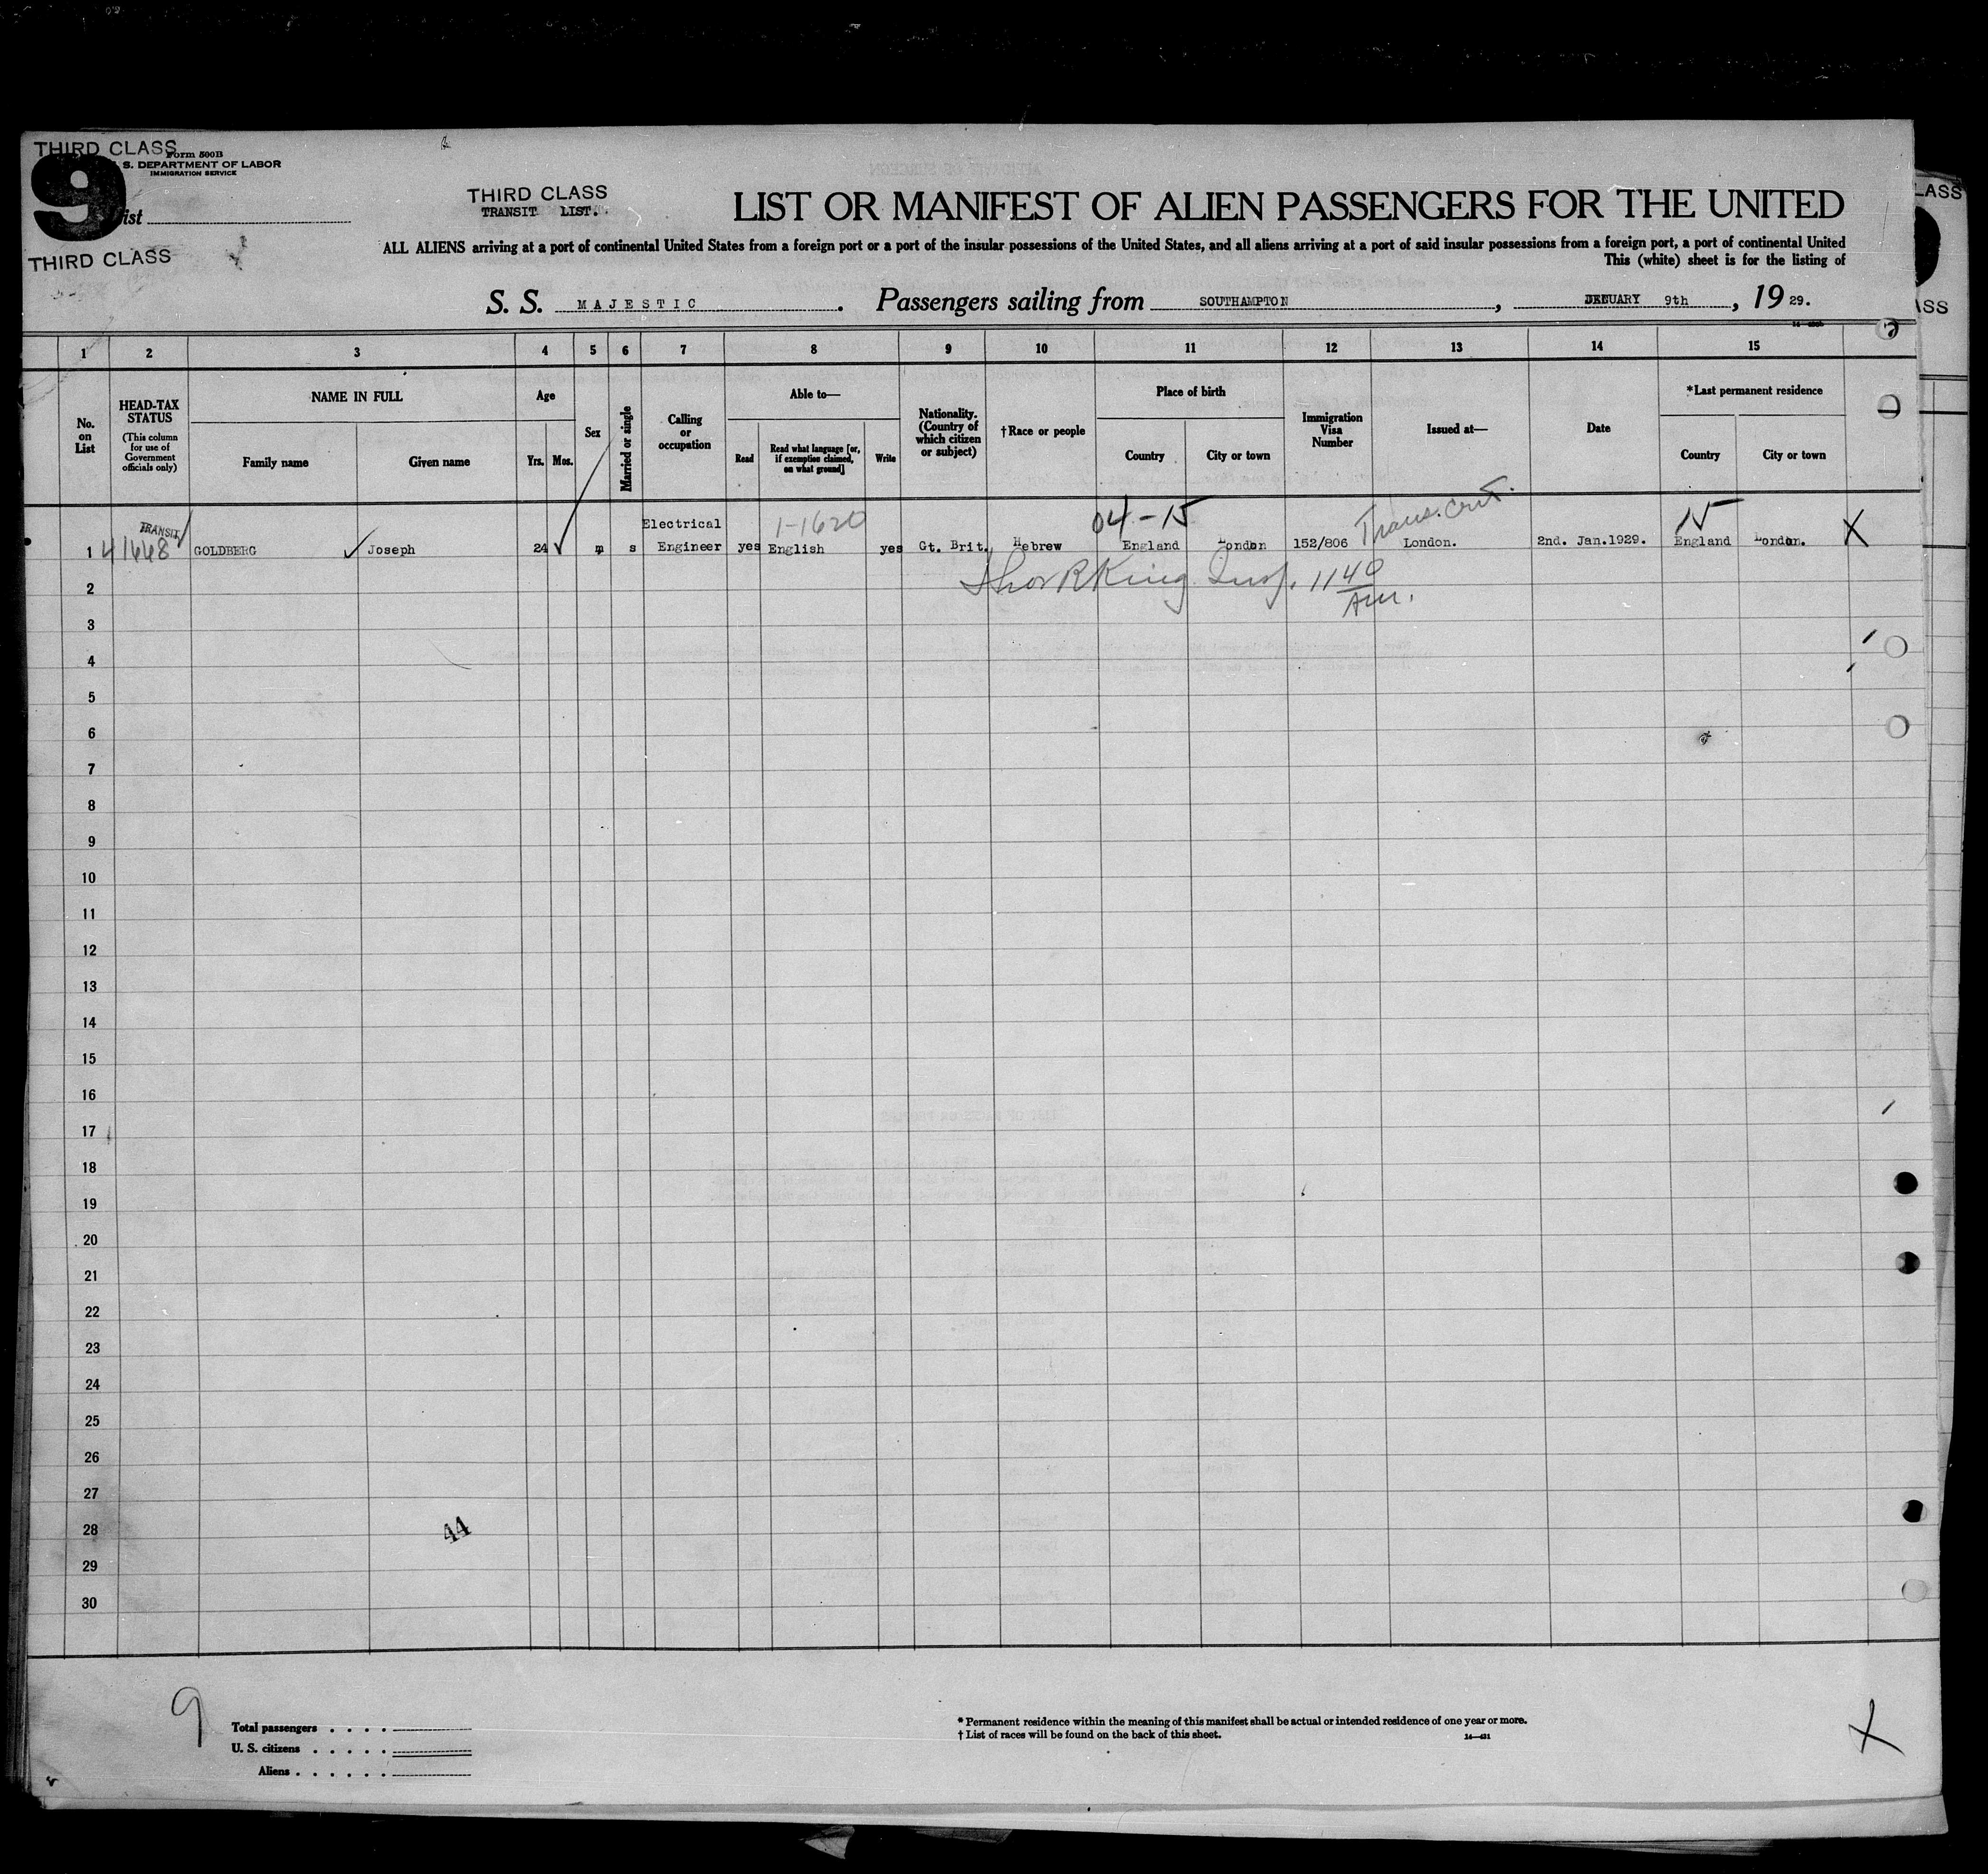 THIRD CLASS
Form 500B
S. DEPARTMENT OF LABOR
IMMIGRATION SERVICE
9
List
THIRD CLASS
THIRD CLASS
TRANSIT LIST.
LIST OR MANIFEST OF ALIEN PASSENGERS FOR THE UNITED
ALL ALIENS arriving at a port of continental United States from a foreign port or a port of the insular possessions of the United States, and all aliens arriving at a port of said insular possessions from a foreign port, a port of continental United
This (white) sheet is for the listing of
S. S. MAJESTIC. Passengers sailing from SOUTHAMPTON, 9th, 19 29.
LASS
ASS
1 2 3 4 5 6 7 8 9 10 11 12 13 14 15
No. on List
HEAD-TAX STATUS
(This column for use of Government officials only)
NAME IN FULL
Family name Given name
Age
Yrs. Mos.
Sex
Married or single
Calling or occupation
Able to—
Read
Read what language [or, if exemption claimed, on what ground]
Write
Nationality. (Country of which citizen or subject)
†Race or people
Place of birth
Country City or town
Immigration Visa Number
Issued at—
Date
*Last permanent residence
Country City or town
TRANSIT Electrical 1-1620 04-15 Trans. Cert. 15
1 41668 GOLDBERG Joseph 24 m s Engineer yes English yes Gt. Brit. Hebrew England London 152/806 London. 2nd. Jan.1929. England London. X
2 King Insp. 11 40 AM.
3
4
5
6
7
8
9
10
11
12
13
14
15
16
17
18
19
20
21
22
23
24
25
26
27
28 44
29
30
9
Total passengers
U. S. citizens
Aliens
* Permanent residence within the meaning of this manifest shall be actual or intended residence of one year or more.
† List of races will be found on the back of this sheet.
X